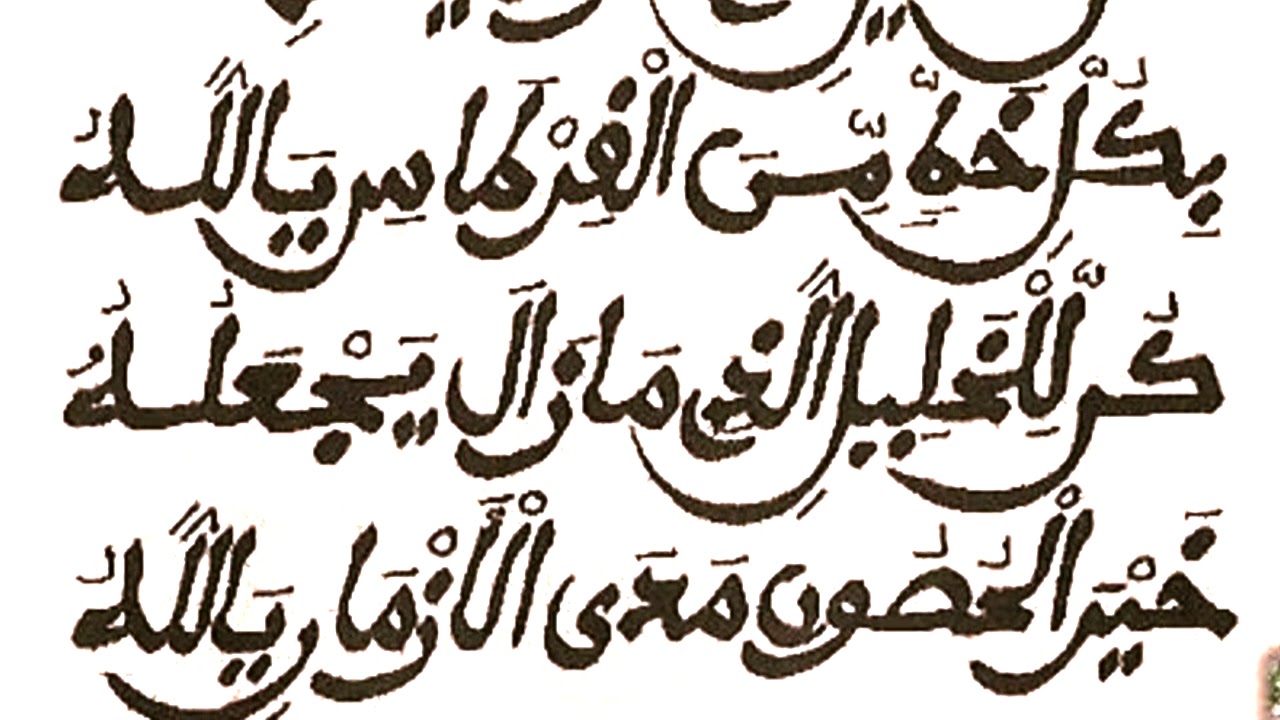 بِكُلِّ خَطٍّ مِّنَ الْقِرْطَاسِ يَا اللهُ
كُن لِّلْخَلِيلِ الَّذِي مَا زَالَ يَجْعَلُهُ
خَيْرَ الْحُصُونِ مَدَى الْأَزْمَانِ يَا اللهُ